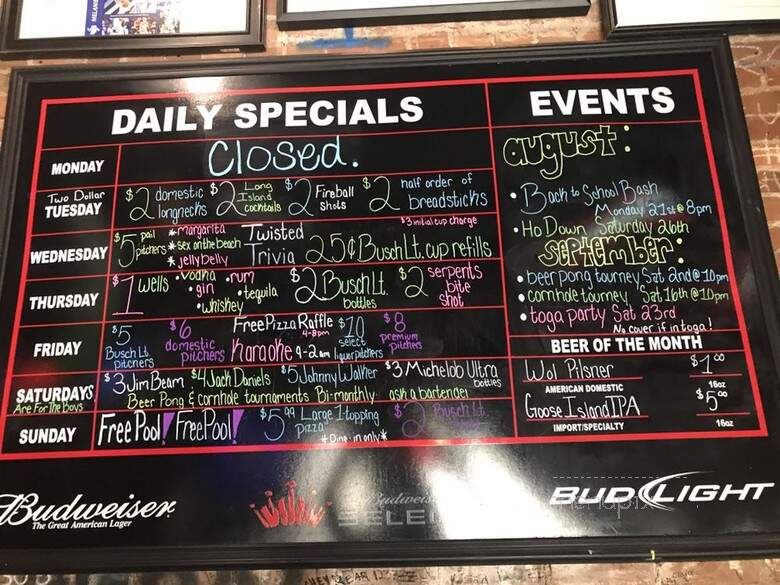 DAILY SPECIALS
MONDAY
Closed.
Two Dollar
TUESDAY
$2 domestic longnecks
$2 Long Island cocktails
$2 Fireball shots
$2 half order of breadsticks
WEDNESDAY
$5 pail pitchers
*margarita
*sex on the beach
*jelly belly
Twisted Trivia
$3 initial cup charge
25¢ Busch Lt. cup refills
THURSDAY
$1 wells
•vodka •rum
•gin •tequila
•whiskey
$2 Busch Lt. bottles
$2 serpents bite shot
FRIDAY
$5 Busch Lt. pitchers
$6 domestic pitchers
Free Pizza Raffle
4-8pm
Karaoke 9-2am
$10 select liquor pitchers
$8 premium pitchers
SATURDAYS
Are For the Boys
$3 Jim Beam $4 Jack Daniels $5 Johnny Walker $3 Michelob Ultra
bottles
Beer Pong & cornhole tournaments Bi-monthly ask a bartender
SUNDAY
Free Pool! Free Pool!
$5.99 Large 1 topping pizza
*Dine-in only*
$2 Busch Lt.
EVENTS
august:
• Back to School Bash
Monday 21st @ 8pm
• Ho Down Saturday 26th
September:
• beer pong tourney Sat 2nd @ 10pm
• cornhole tourney Sat 16th @ 10pm
• toga party Sat 23rd
No cover if in toga!
BEER OF THE MONTH
Wol Pilsner $1.00
AMERICAN DOMESTIC 16oz
Goose Island IPA $5.00
IMPORT/SPECIALTY 16oz
Budweiser
The Great American Lager
Budweiser
SELE
BUD LIGHT
menupix